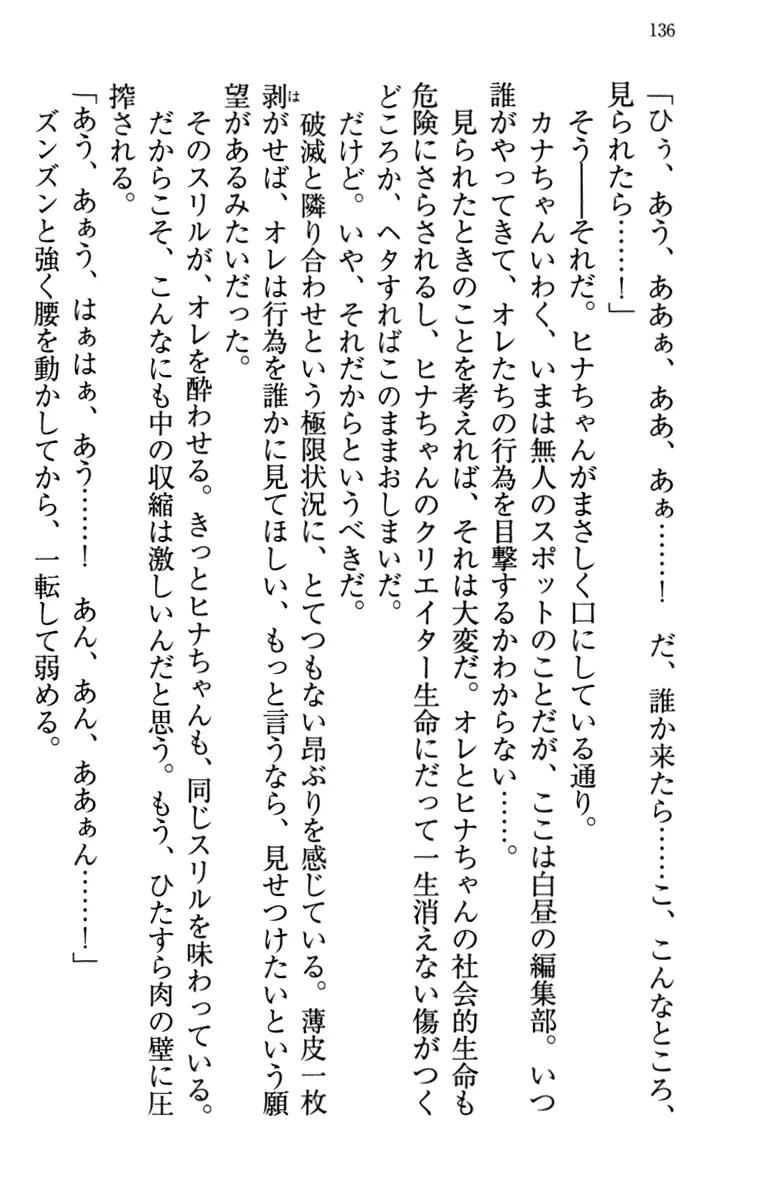 136
「ひぅ、あう、ああぁ、ああ、あぁ……！　だ、誰か来たら……こ、こんなところ、
見られたら……！」
そう――それだ。ヒナちゃんがまさしく口にしている通り。
カナちゃんいわく、いまは無人のスポットのことだが、ここは白昼の編集部。いつ
誰がやってきて、オレたちの行為を目撃するかわからない……。
見られたときのことを考えれば、それは大変だ。オレとヒナちゃんの社会的生命も
危険にさらされるし、ヒナちゃんのクリエイター生命にだって一生消えない傷がつく
どころか、ヘタすればこのままおしまいだ。
だけど。いや、それだからというべきだ。
破滅と隣り合わせという極限状況に、とてつもない昂ぶりを感じている。薄皮一枚
剥がせば、オレは行為を誰かに見てほしい、もっと言うなら、見せつけたいという願
は
望があるみたいだった。
そのスリルが、オレを酔わせる。きっとヒナちゃんも、同じスリルを味わっている。
だからこそ、こんなにも中の収縮は激しいんだと思う。もう、ひたすら肉の壁に圧
搾される。
「あう、あぁう、はぁはぁ、あう……！　あん、あん、ああぁん……！」
ズンズンと強く腰を動かしてから、一転して弱める。